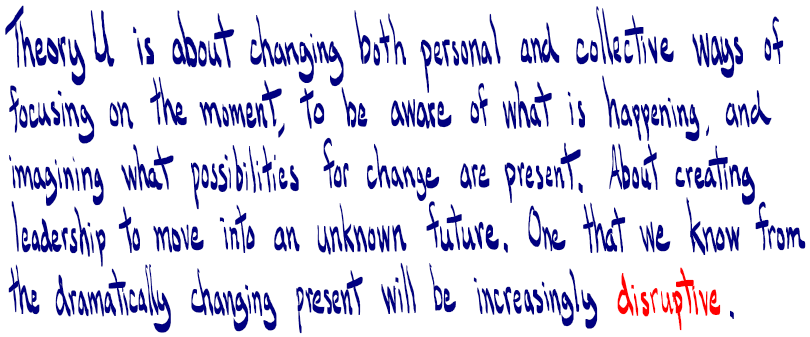 Theory U is about changing both personal and collective ways of
focusing on the moment, to be aware of what is happening, and
imagining what possibilities for change are present. About creating
leadership to move into an unknown future. One that we know from
the dramatically changing present will be increasingly disruptive.